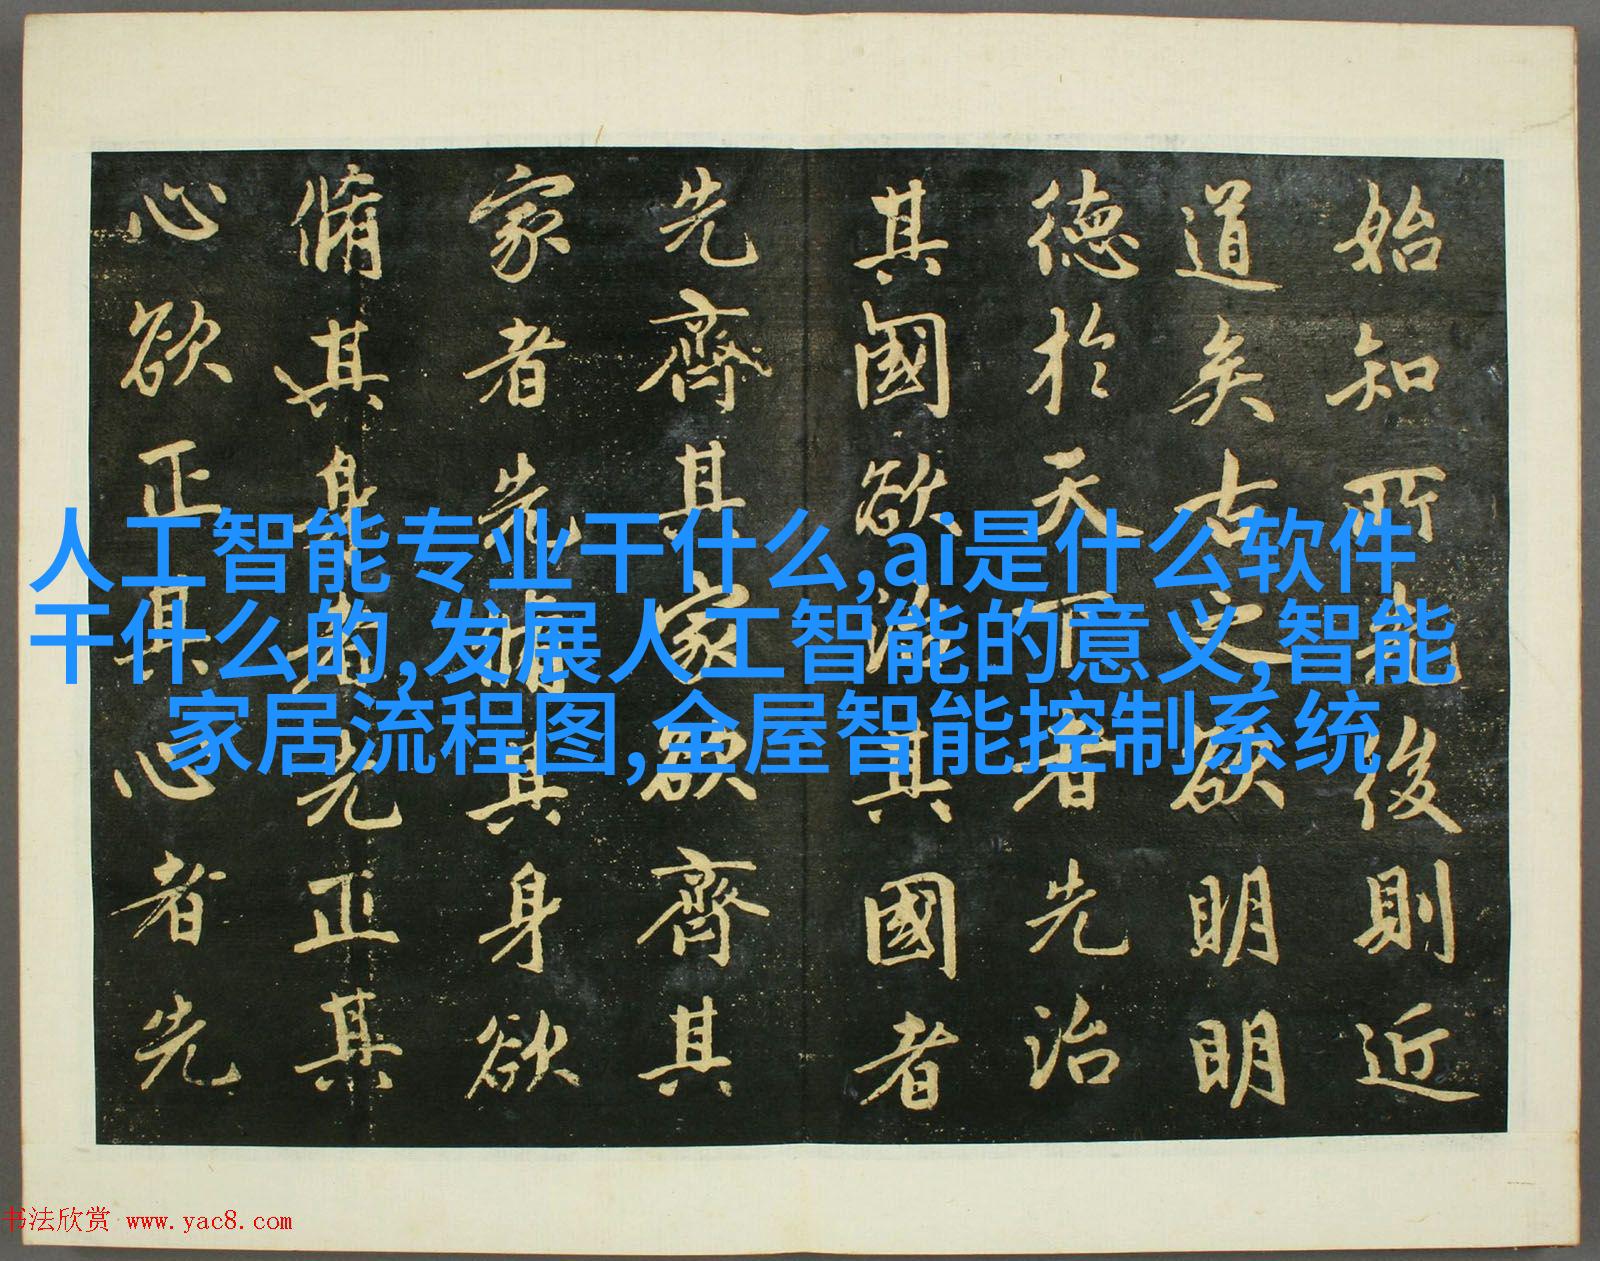 始知所先後則近
道矣古之欲明明
德於天下者先治
其國欲治其國者
先齊其家欲齊其
家者先脩其身欲
脩其身者先正其
心欲正其心者先
人工智能专业干什么,ai是什么软件
干什么的,发展人工智能的意义,智能
家居流程图,全屋智能控制系统
书法欣赏 www.yac8.com